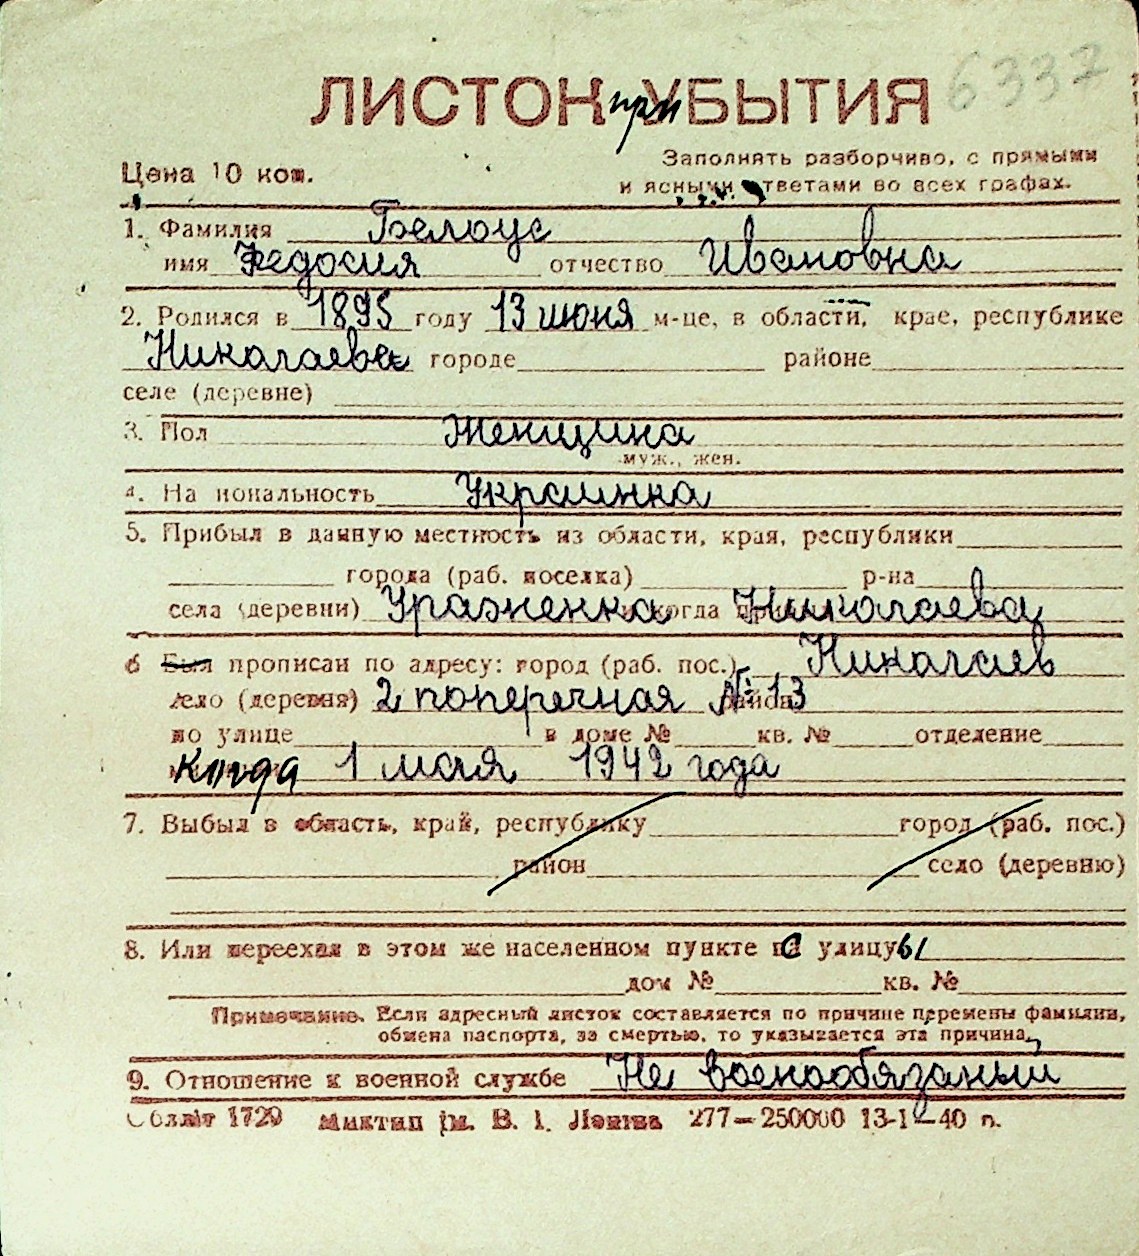 6337
ЛИСТОК при УБЫТИЯ
Цена 10 коп.
Заполнять разборчиво, с прямыми
и ясными ответами во всех графах.
1. Фамилия Белоус
имя Федосия отчество Ивановна
2. Родился в 1895 году 13 июня м-це, в области, крае, республике
Николаеве городе районе
селе (деревне)
3. Пол Женщина
муж., жен.
4. Национальность Украинка
5. Прибыл в данную местность из области, края, республики
города (раб. поселка) р-на
села (деревни) и когда Николаева
6 Был прописан по адресу: город (раб. пос.) Николаев
село (деревня) 2 поперечная № 13
по улице в доме № кв. № отделение
когда 1 мая 1942 года
7. Выбыл в область, край, республику город (раб. пос.)
район село (деревню)
8. Или переехал в этом же населенном пункте с улицы
дом № кв. №
Примечание. Если адресный листок составляется по причине перемены фамилии,
обмена паспорта, за смертью, то указывается эта причина,
9. Отношение к военной службе Не военообязаный
Обллит 1729 Миктип ім. В. І. Леніна 277—250000 13-1—40 р.